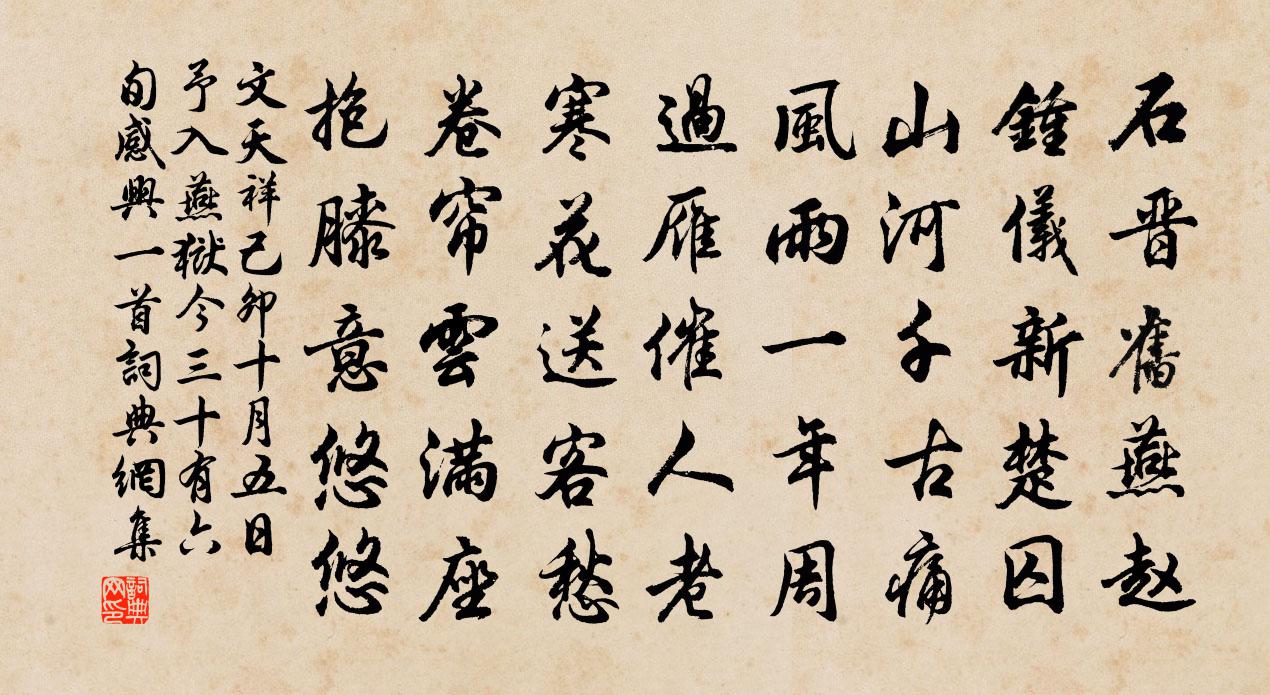 石晋舊燕赵
鍾儀新楚囚
山河千古痛
風雨一年周
過雁催人老
寒花送客愁
卷帘雲滿座
抱膝意悠悠
文天祥己卯十月五日
予入燕獄今三十有六
旬感興一首詞典網集
詞典
网印